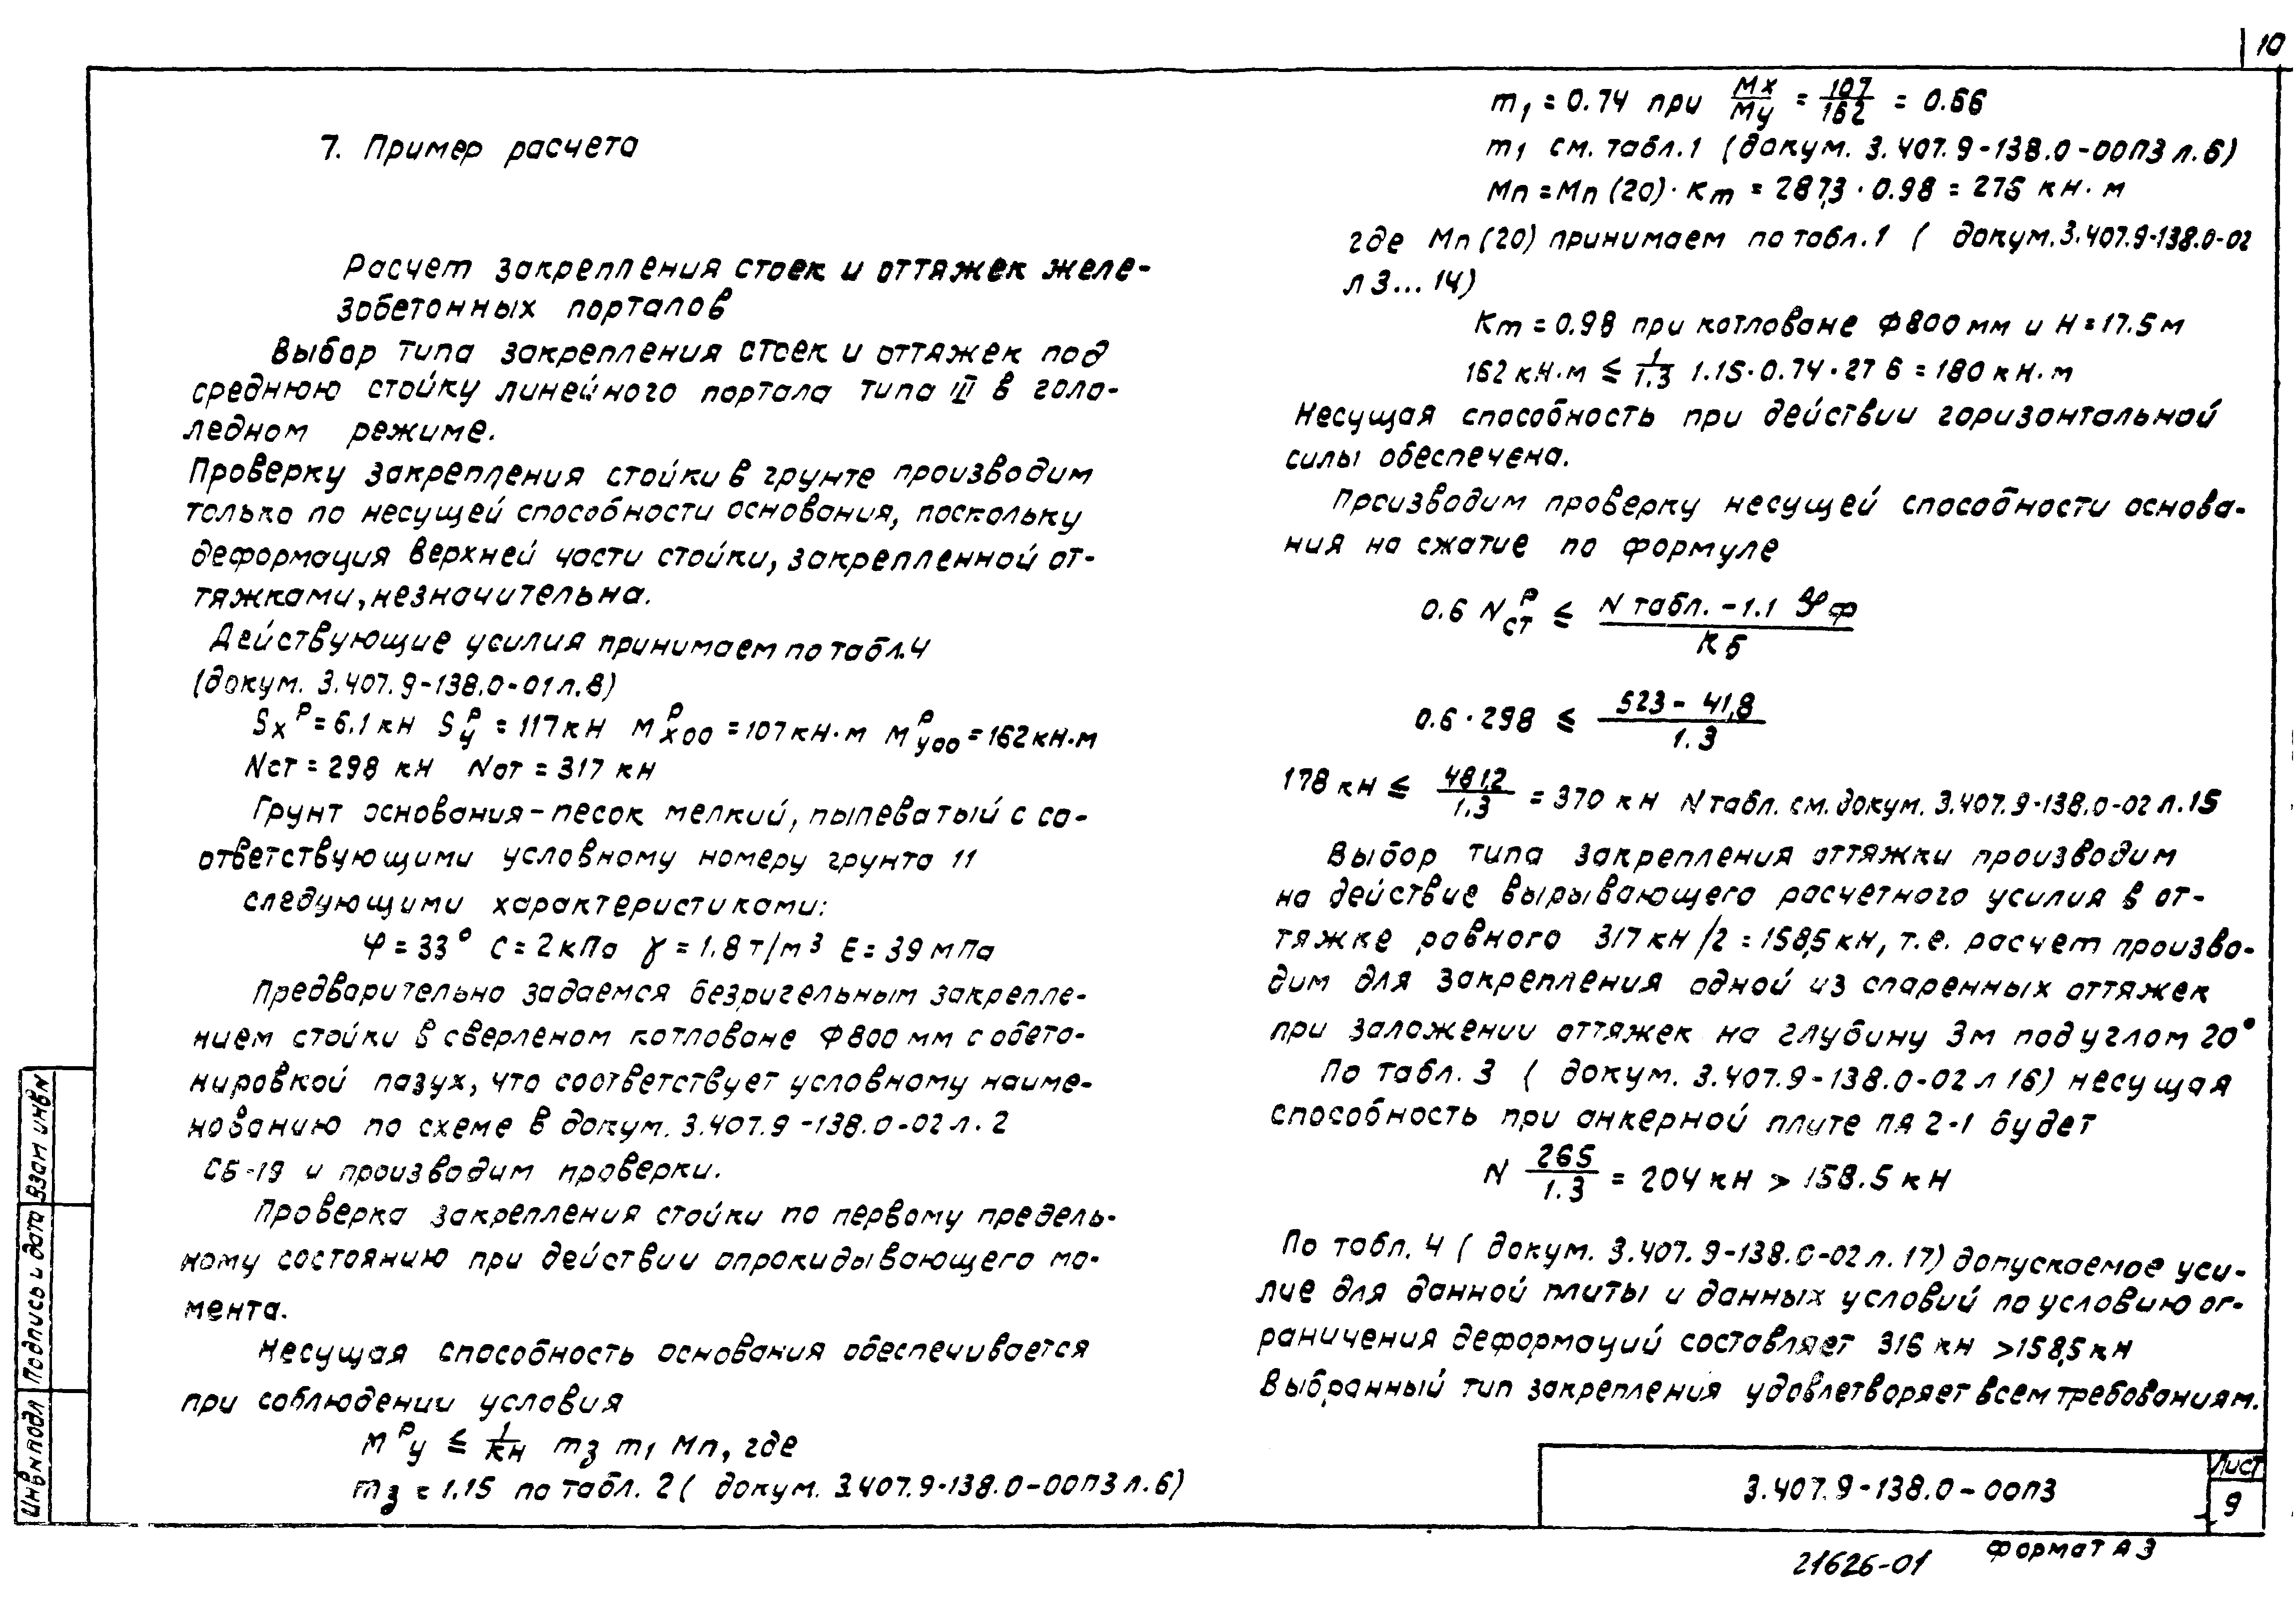 10
7. Пример расчета
Расчет закрепления стоек и оттяжек желе-
зобетонных порталов
Выбор типа закрепления стоек и оттяжек под
среднюю стойку линейного портала типа III в голо-
ледном режиме.
Проверку закрепления стойки в грунте производим
только по несущей способности основания, поскольку
деформация верхней части стойки, закрепленной от-
тяжками, незначительна.
Действующие усилия принимаем по табл.4
(докум. 3.407.9-138.0-01 л.8)
Sx^р = 6.1 кН Sу^р = 117 кН М^р х00 = 107 кН·м М^р у00 = 162 кН·м
Nст = 298 кН Nот = 317 кН
Грунт основания - песок мелкий, пылеватый с со-
ответствующими условному номеру грунта 11
следующими характеристиками:
φ = 33° С = 2 кПа γ = 1.8 т/м³ Е = 39 мПа
Предварительно задаемся безригельным закрепле-
нием стойки в сверленом котловане Ф 800 мм с обето-
нировкой пазух, что соответствует условному наиме-
нованию по схеме в докум. 3.407.9-138.0-02 л.2
СБ-19 и производим проверки.
Проверка закрепления стойки по первому предель-
ному состоянию при действии опрокидывающего мо-
мента.
Несущая способность основания обеспечивается
при соблюдении условия
М^р у ≤ 1/кн mз m1 Мп, где
mз = 1.15 по табл. 2 ( докум. 3.407.9-138.0-00ПЗ л.6)
m1 = 0.74 при Мх/Му = 107/162 = 0.66
m1 см. табл.1 (докум. 3.407.9-138.0-00ПЗ л.6)
Мп = Мп (20) · Кт = 287,3 · 0.98 = 276 кН·м
где Мп (20) принимаем по табл.1 ( докум.3.407.9-138.0-02
л 3... 14)
Кт = 0.98 при котловане Ф 800 мм и Н = 17.5 м
162 кН·м ≤ 1/1.3 1.15 · 0.74 · 276 = 180 кН·м
Несущая способность при действии горизонтальной
силы обеспечена.
Производим проверку несущей способности основа-
ния на сжатие по формуле
0.6 N^р ст ≤ (N табл. - 1.1 ϥф)/Кб
0.6 · 298 ≤ (523 - 41,8)/1.3
178 кН ≤ 481,2/1.3 = 370 кН N табл. см. докум. 3.407.9-138.0-02 л.15
Выбор типа закрепления оттяжки производим
на действие вырывающего расчетного усилия в от-
тяжке равного 317 кН /2 = 158,5 кН, т.е. расчет произво-
дим для закрепления одной из спаренных оттяжек
при заложении оттяжек на глубину 3м под углом 20°
По табл. 3 ( докум. 3.407.9-138.0-02 л 16) несущая
способность при анкерной плите ПА 2-1 будет
N 265/1.3 = 204 кН > 158.5 кН
По табл. 4 ( докум. 3.407.9-138.0-02 л. 17) допускаемое уси-
лие для данной плиты и данных условий по условию ог-
раничения деформаций составляет 316 кН > 158,5 кН
Выбранный тип закрепления удовлетворяет всем требованиям.
Инв.№подл Подпись и дата Взам инв№
3.407.9-138.0-00ПЗ
Лист
9
21626-01
Формат А3